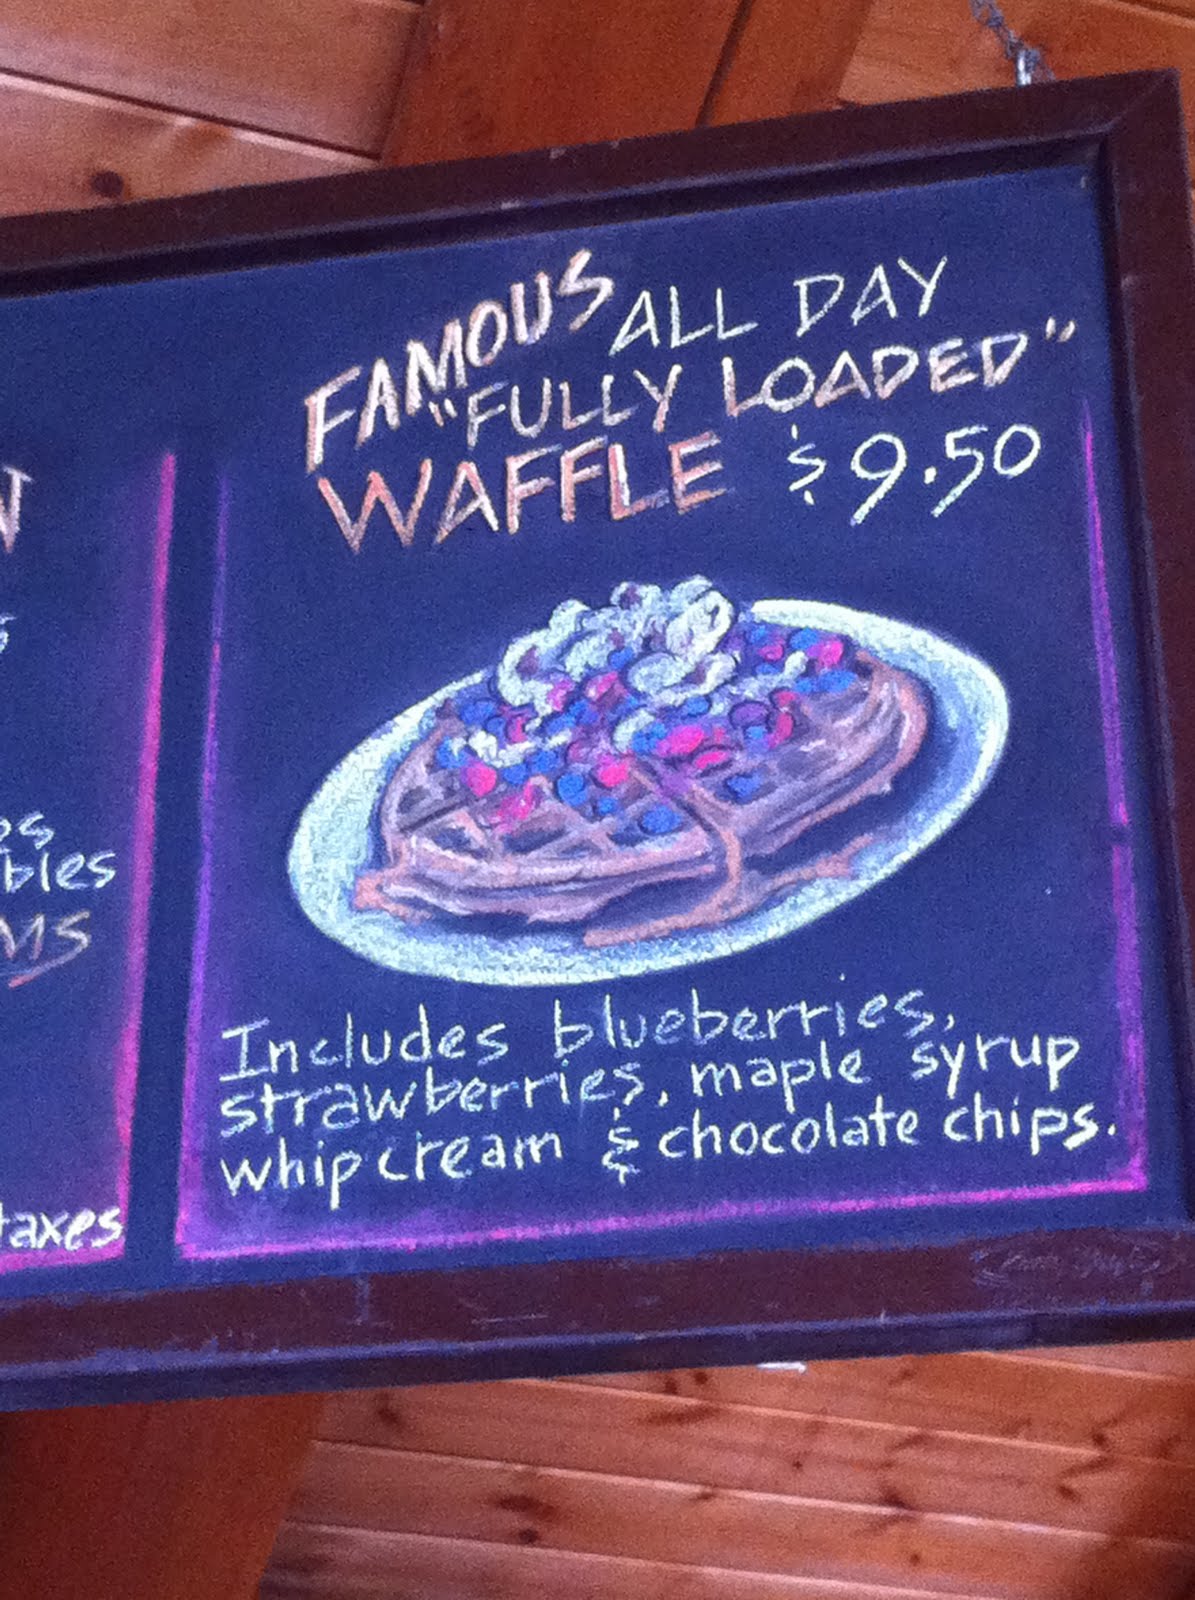 FAMOUS ALL DAY
"FULLY LOADED"
WAFFLE $9.50
Includes blueberries,
strawberries, maple syrup
whip cream & chocolate chips.
taxes